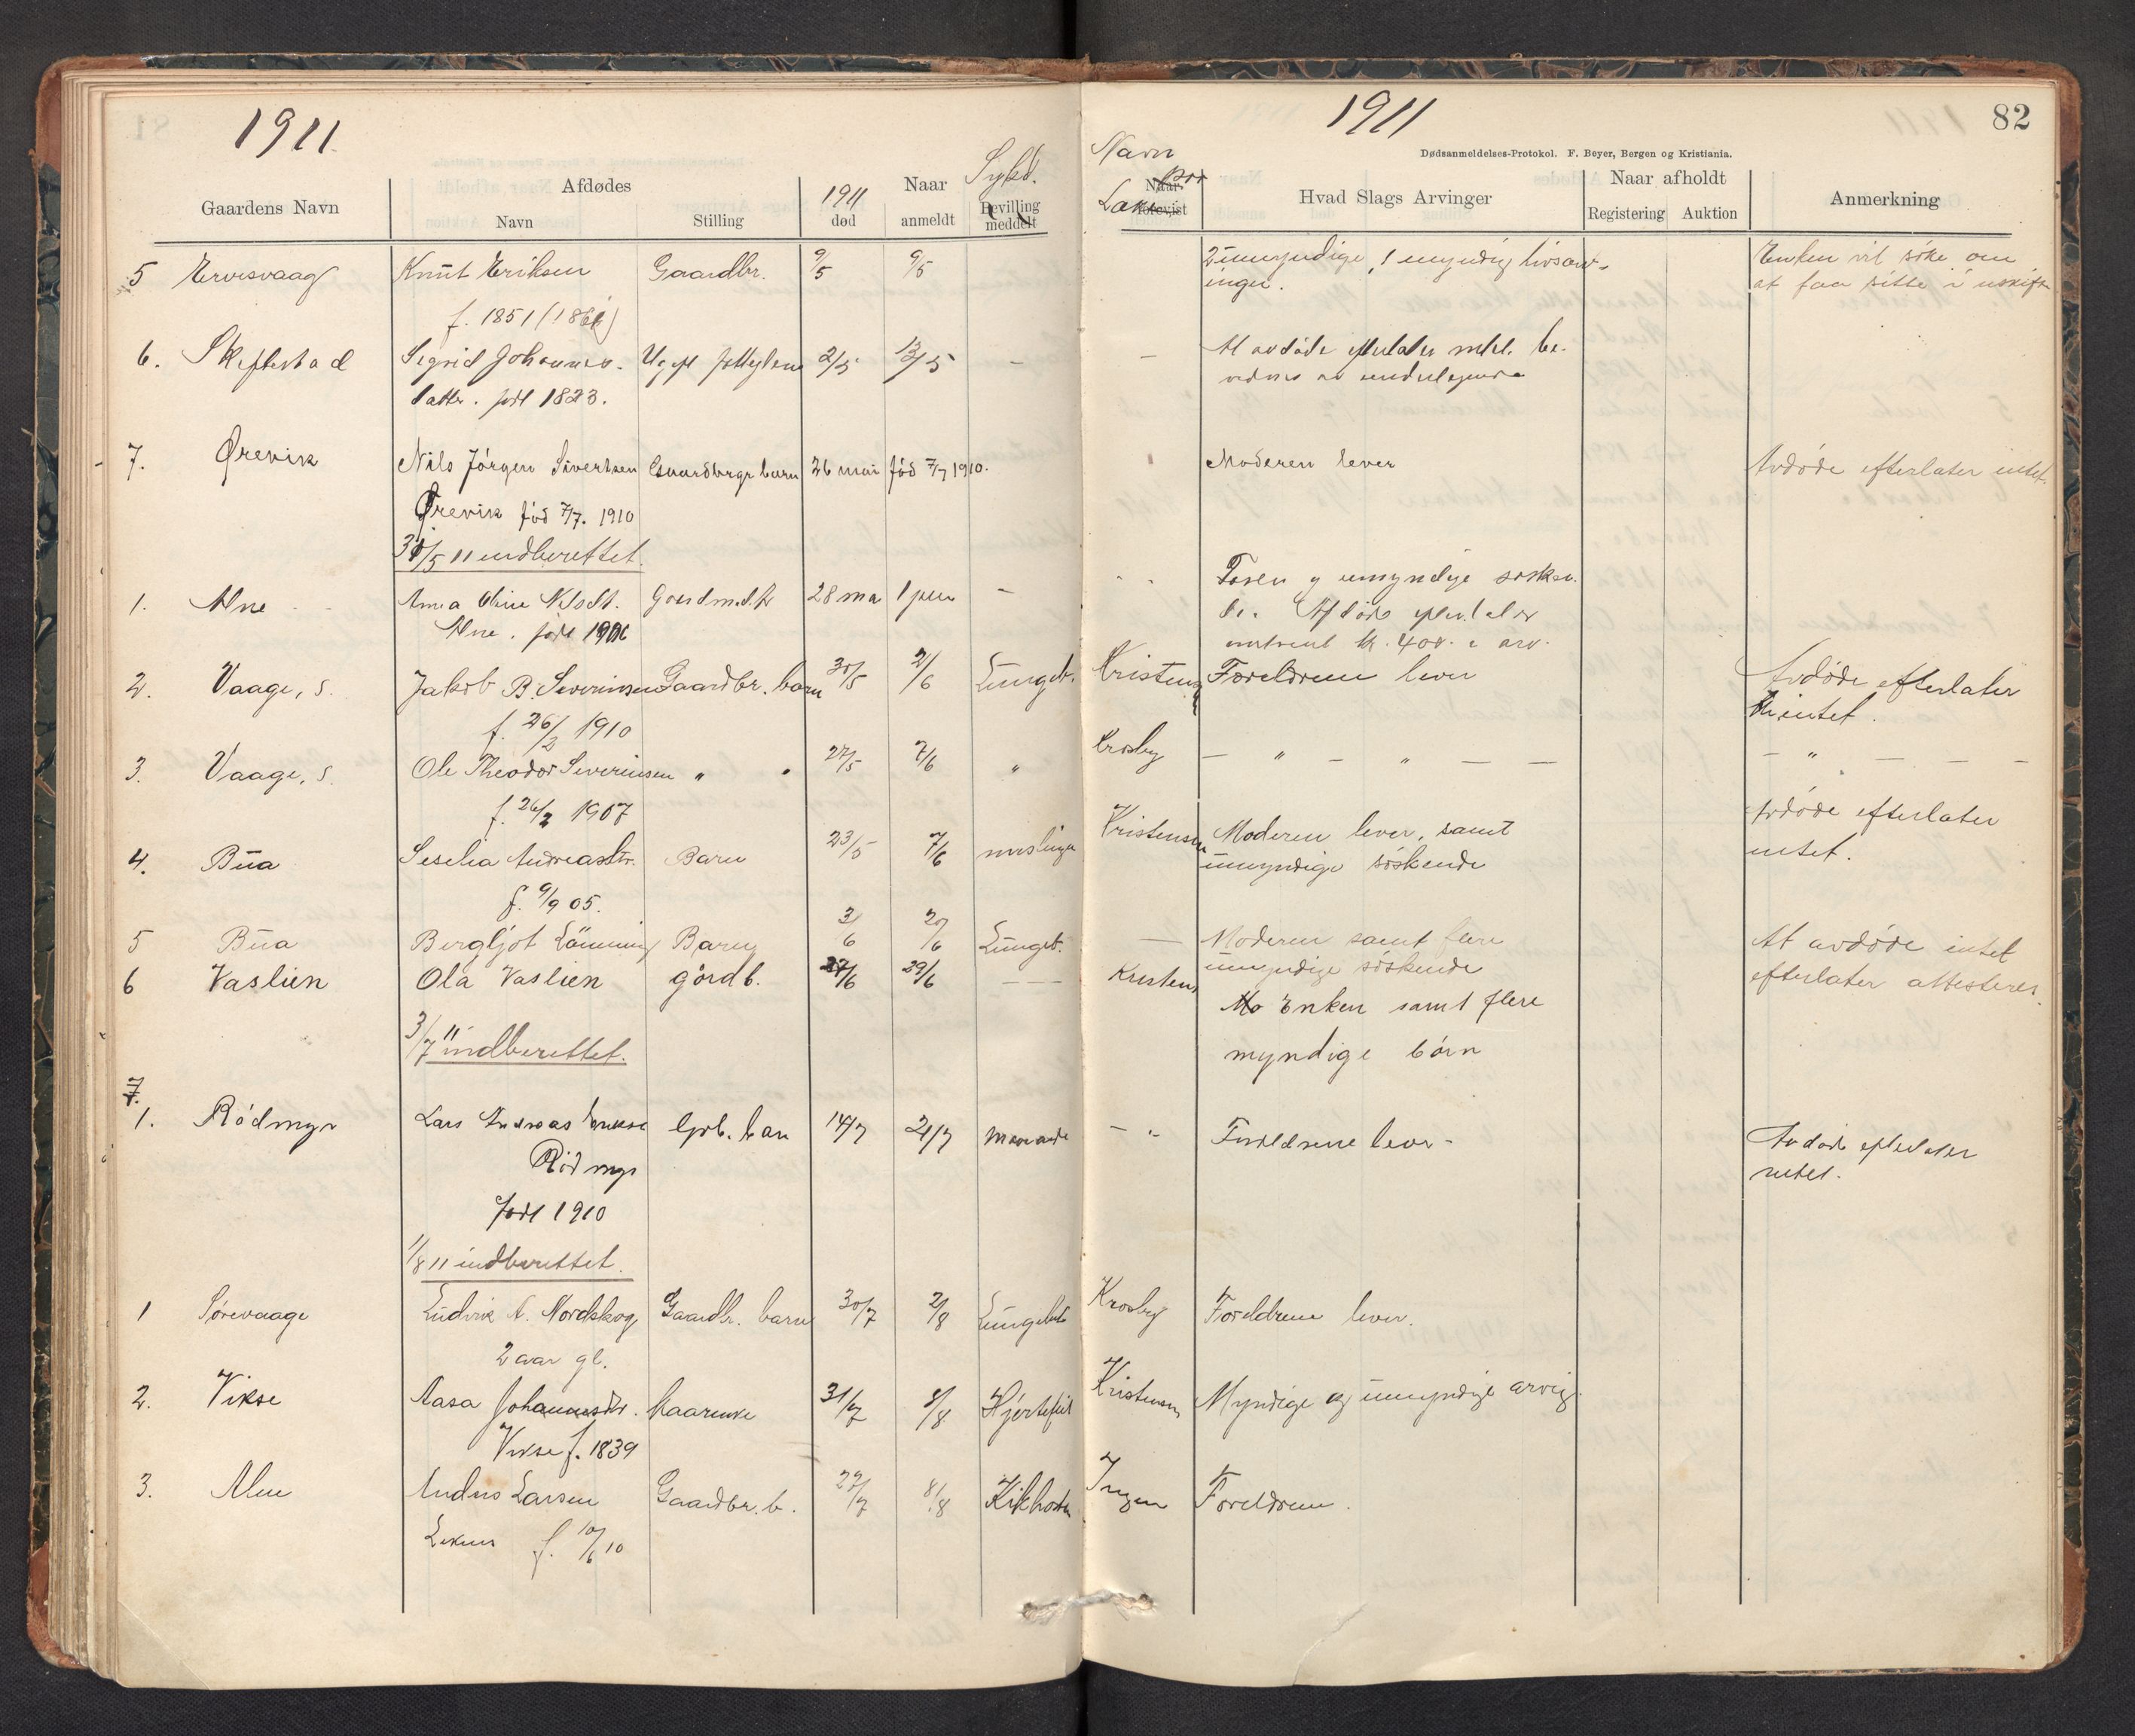 1911
Afdødes
Naar
Sykd.
Gaardens Navn
Navn
Stilling
1911
død
anmeldt
Bevilling
meddelt
5 Ervesvaag Knut Eriksen Gaardbr. 9/5 9/5
f. 1851
6. Skiftestad Sigrid Johannes- Ugift 2/5 13/5 -
datter. født 1823.
7. Ørevik Nils Jörgen Sivertsen Gaardbrgr barn 26 mai fód 7/7 1910.
Ørevik fód 7/7. 1910
/5 11 indberettet.
1. Alne Anna Oline 28 mai 1 -
Alne. født
2. Vaage, s. Jakob B. Severinsen Gaardbr. barn 30/5 2/6 Lunget.
f. 26/2 1910
3. Vaage, s. Ole Theodor Severinsen " " 27/5 7/6 "
f. 26/2 1907
4. Bua Seselia Andreasdtr. Barn 23/5 7/6 meslinger
f. 9/9 05.
5 Bua Bergljot Lönning Barn 3/6 20/6 Lunget.
6 Vaslien Ola Vaslien gårdb. 27/6 29/6 ---
3/7 11 indberettet.
7.
1. Rödmyr Lars Andreas Grb. barn 14/7 21/7
Rödmyr
Født 1910
1/8 11 indberettet.
1 Sørevaage Ludvik A. Nordskog Gaardbr. barn 30/7 2/8 Lungebet
2 aar gl.
2. Vikse Aasa Johannesdtr. Kaarenke 31/7 8/8 Hjertefeil
Vikse f. 1839
3. Alne Andreas Larsen Gaardbr. b. 29/7 8/8 Kikhoste
f. 10/6 10
1911
82
Dødsanmeldelses-Protokol. F. Beyer, Bergen og Kristiania.
Navn
paa
Naar
Læke
Hvad Slags Arvinger
Naar afholdt
Registering
Auktion
Anmerkning
2 umyndige, 1 myndig livsarv-
inger.
Enken vil söke om
at faa sitte i uskifte
- At avdöde efterlater midl. be-
vidnes av undertegnede
Moderen lever
Avdöde efterlater intet.
Faren og umyndige sösken-
de. Afdöde efterlater
kr. 400.- i arv.
Kristensen Foreldrene lever
Avdöde efterlater
intet.
Krosby - " - " - -
- " - - -
Kristensen Moderen lever, samt
umyndige söskende
Avdöde efterlater
intet.
- Moderen samt flere
umyndige söskende
At avdöde intet
efterlater attesteres.
Kristens Enken samt flere
myndige börn
- " Foreldrene lever -
Avdöde efterlater
intet.
Krosby Foreldrene lever.
Kristensen Myndige og umyndige arving.
Ingen Foreldrene.